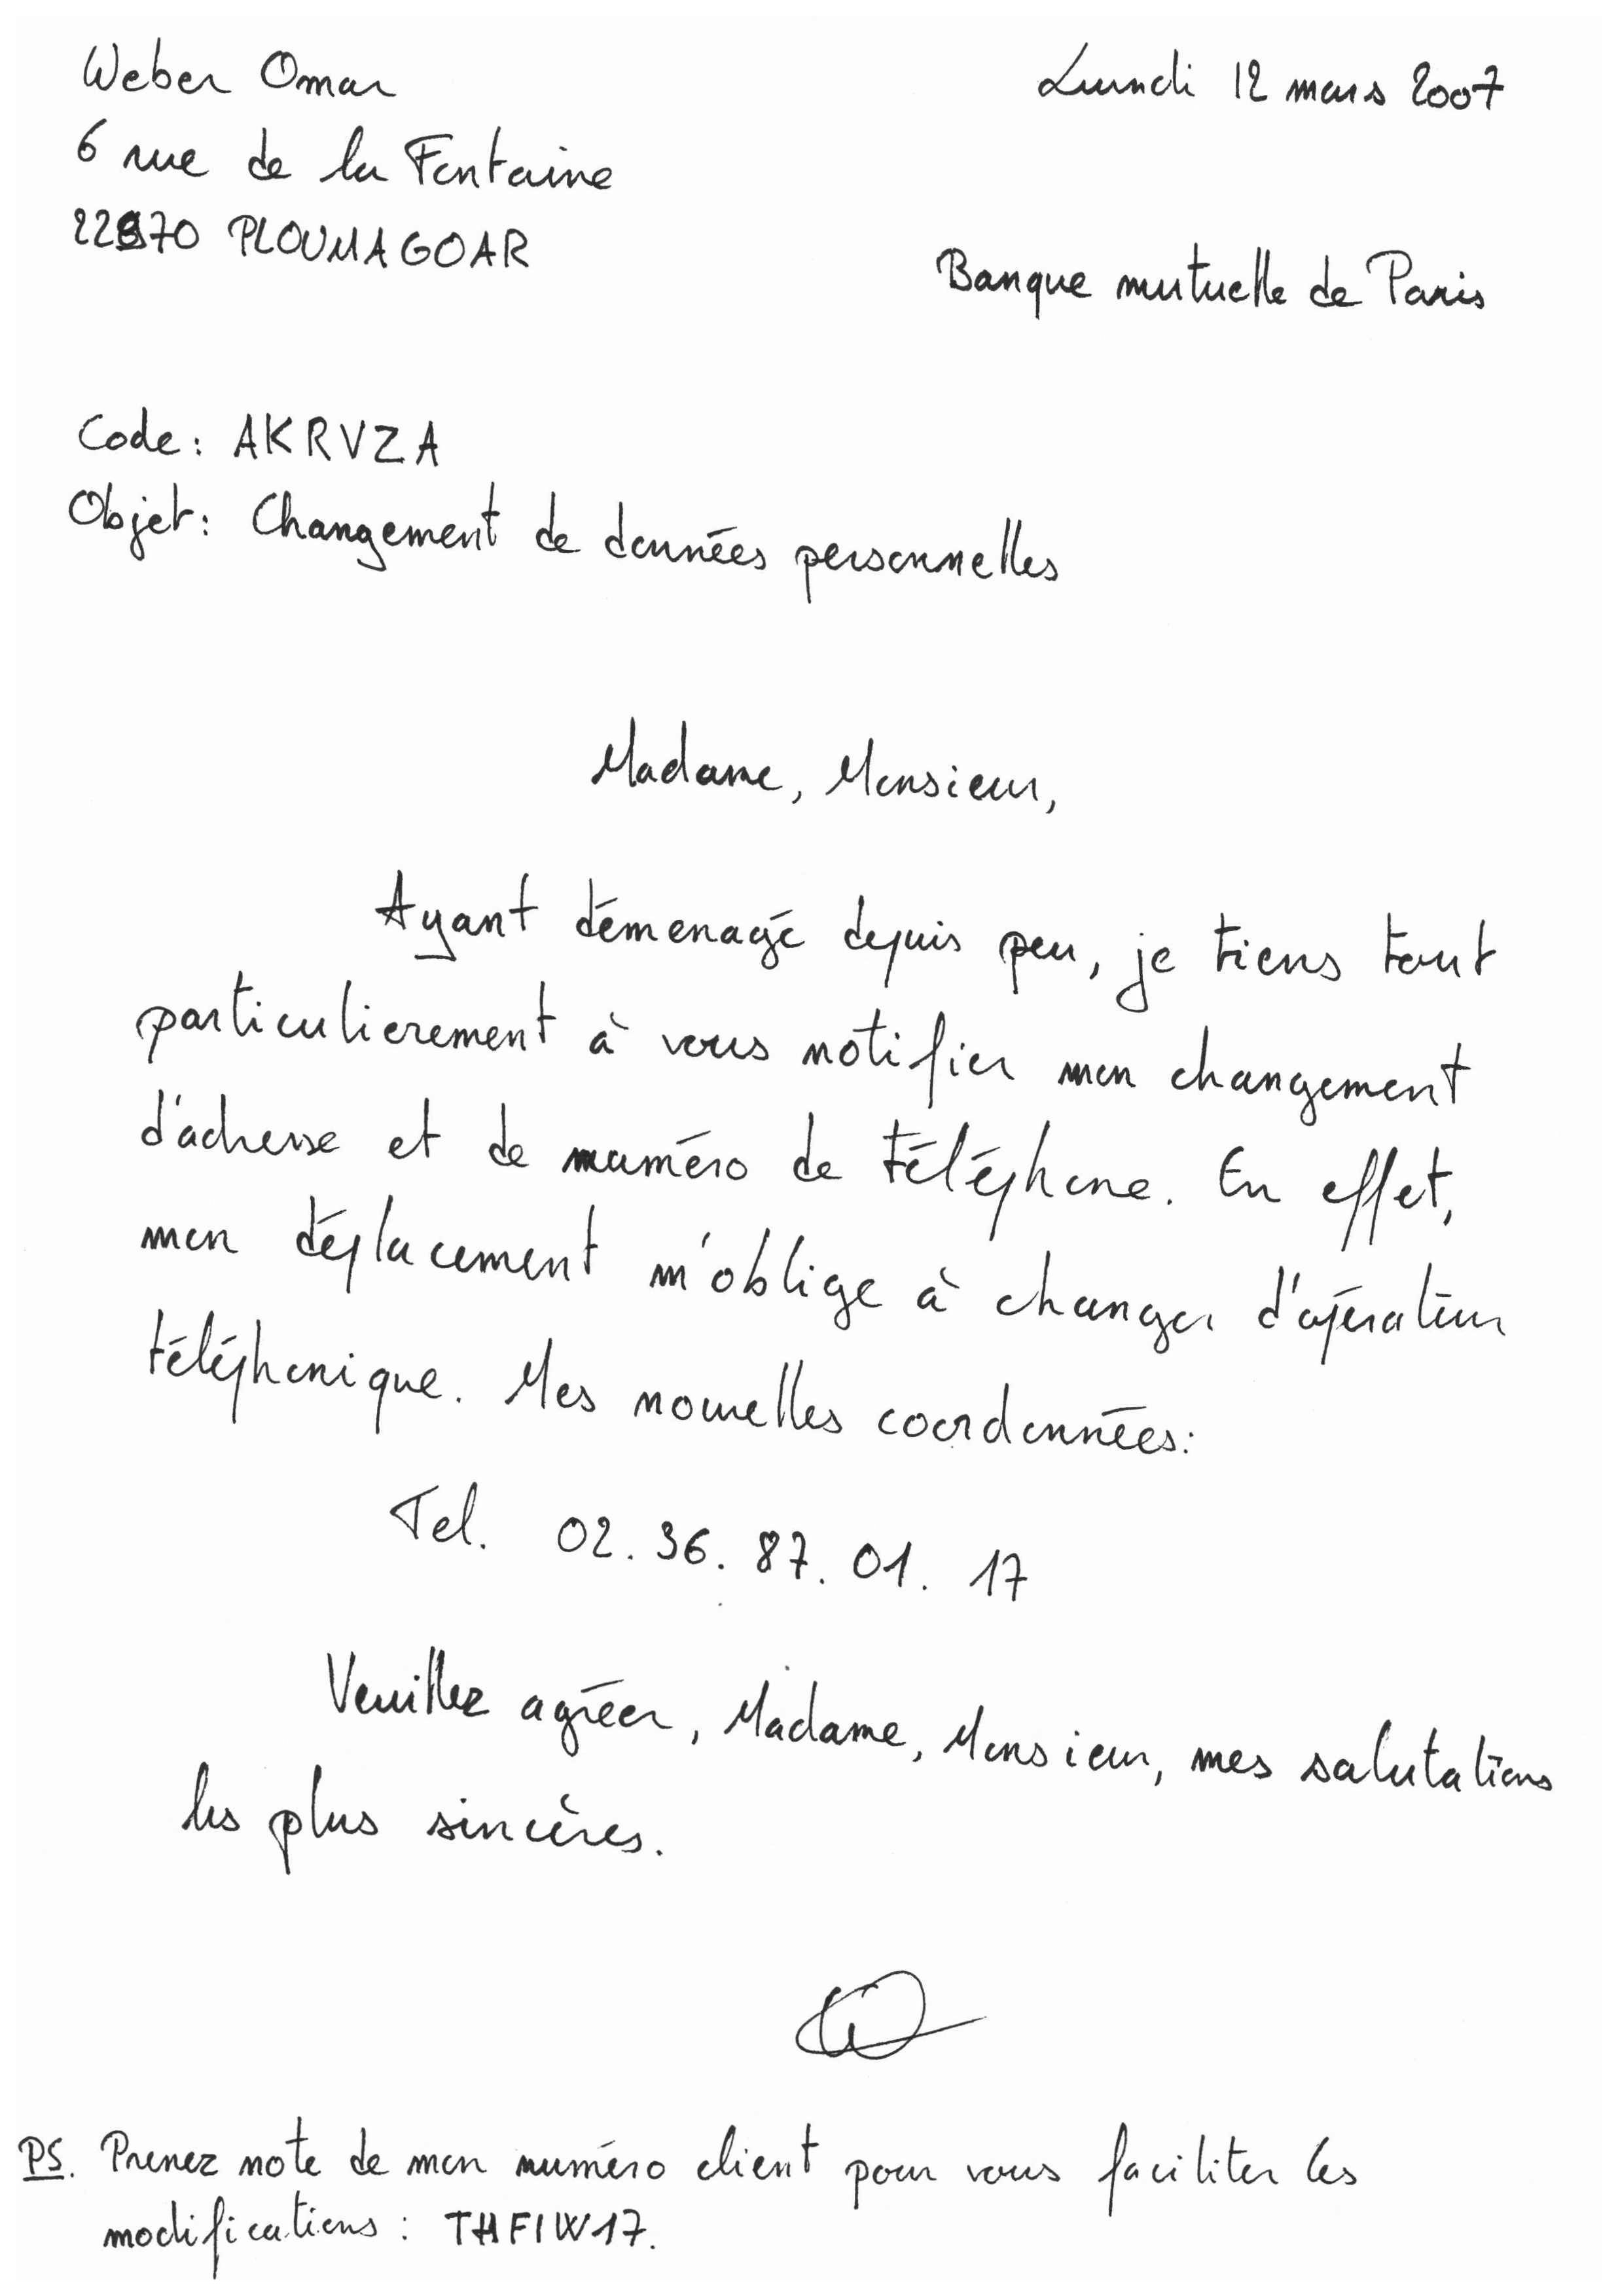 Weber Omar
Lundi 12 mars 2007
6 rue de la Fontaine
22970 PLOUMAGOAR
Banque mutuelle de Paris
Code : AKRVZA
Objet : Changement de données personnelles
Madame, Monsieur,
Ayant démenagé depuis peu, je tiens tout
particulierement à vous notifier mon changement
d'adresse et de numéro de téléphone. En effet,
mon déplacement m'oblige à changer d'opérateur
téléphonique. Mes nouvelles coordonnées:
Tel. 02. 36. 87. 01. 17
Veuillez agréer, Madame, Monsieur, mes salutations
les plus sincères.
PS. Prenez note de mon numéro client pour vous faciliter les
modifications : THFIW17.